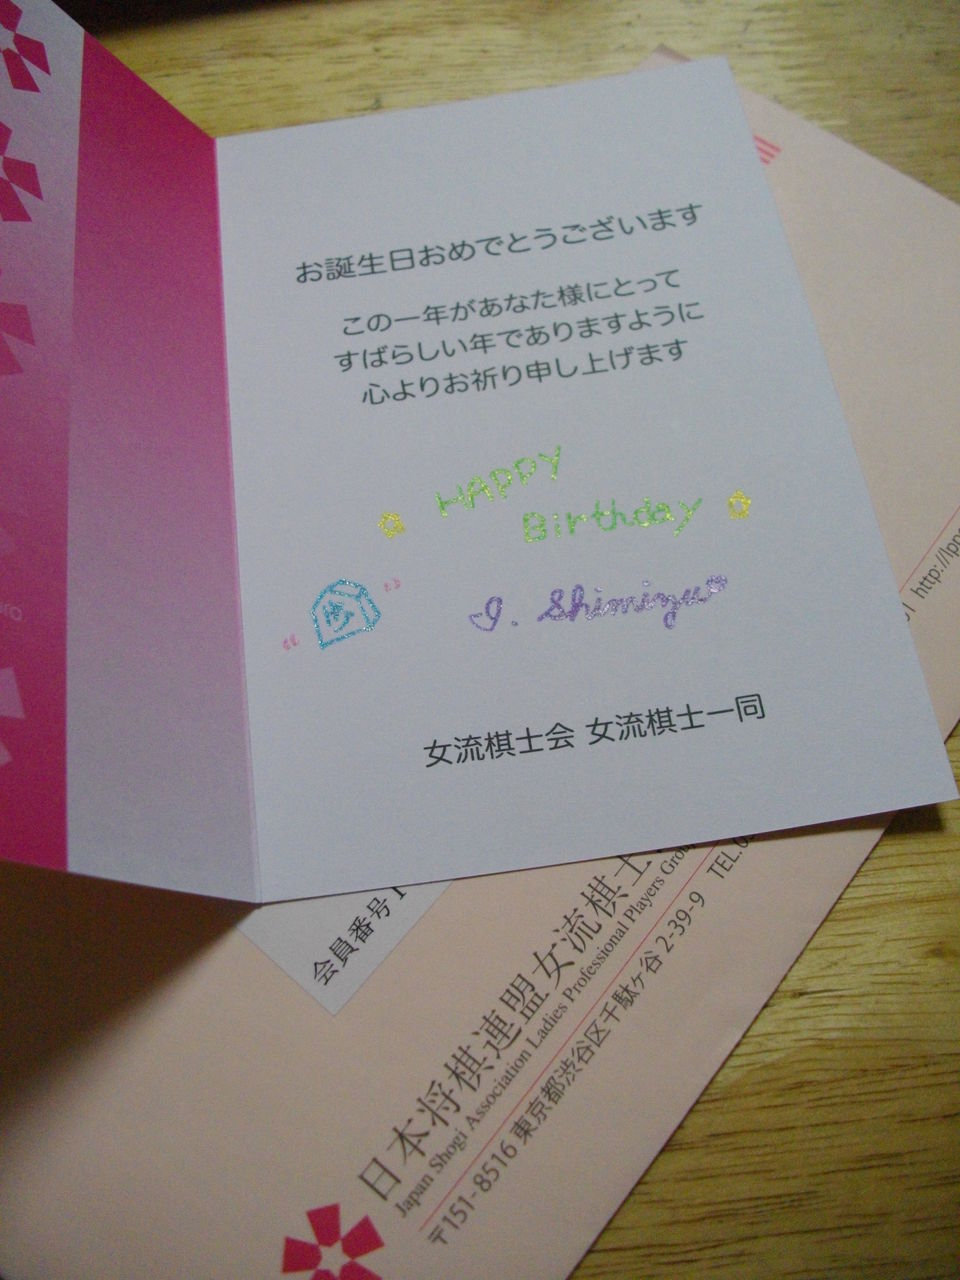 お誕生日おめでとうございます
この一年があなた様にとって
すばらしい年でありますように
心よりお祈り申し上げます
HAPPY
Birthday
歩
I. Shimizu
女流棋士会 女流棋士一同
会員番号
日本将棋連盟女流棋士
Japan Shogi Association Ladies Professional Players Group
〒151-8516 東京都渋谷区千駄ヶ谷 2-39-9 TEL.0
http://lpp